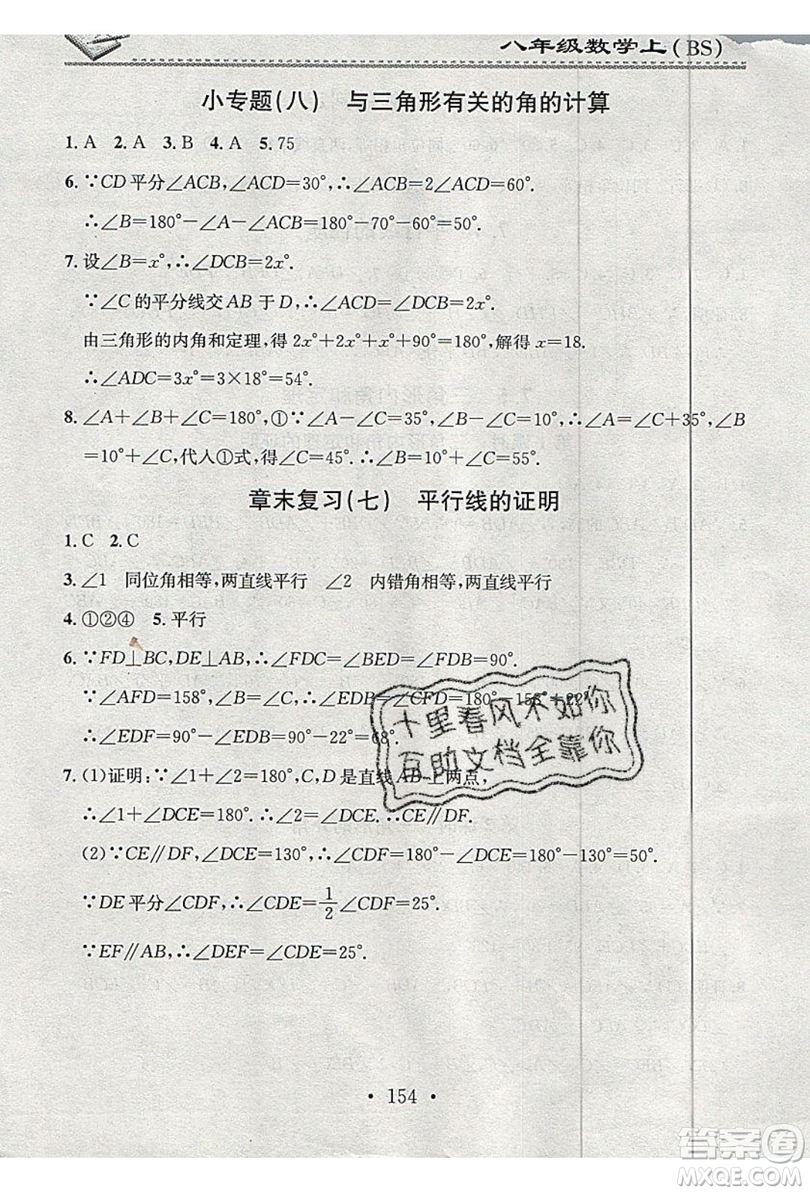 八年级数学上(BS)
小专题(八) 与三角形有关的角的计算
1.A 2.A 3.B 4.A 5.75
6.∵CD平分∠ACB,∠ACD=30°,∴∠ACB=2∠ACD=60°.
∴∠B=180°-∠A-∠ACB=180°-70°-60°=50°.
7.设∠B=x°,∴∠DCB=∠B=x°.
∵∠C的平分线交AB于D,∴∠DCB=∠ACD=x°.
由三角形的内角和定理,得2x°+2x°+x°+90°=180°,解得x=18.
∴∠ADC=3x°=3×18°=54°.
8.∠A+∠B+∠C=180°,①∵∠A-∠C=35°,∠B-∠C=10°,∴∠A=∠C+35°,∠B
=10°+∠C,代人①式,得∠C+35°+10°+∠C+∠C=180°,∴∠C=45°,∠B=55°.
章末复习(七) 平行线的证明
1.C 2.C
3.∠1 同位角相等,两直线平行 ∠2 内错角相等,两直线平行
4.①②④ 5.平行
6.∵FD⊥BC,DE⊥AB,∴∠FDC=∠BED=∠FDB=90°.
∵∠AFD=158°,∠B=∠C,∴∠BDE=∠CFD=180°-158°=22°.
∴∠EDF=90°-∠BDE=90°-22°=68°.
7.(1)证明:∵∠1+∠2=180°,C,D是直线AB上两点,
∴∠1+∠DCE=180°.∴∠2=∠DCE.∴CE∥DF.
(2)∵CE∥DF,∠DCE=130°,∴∠CDF=180°-∠DCE=180°-130°=50°.
∵DE平分∠CDF,∴∠CDE=1/2∠CDF=25°.
∵EF∥AB,∴∠DEF=∠CDE=25°.
十里春风不如你
互助文档全靠你
·154·
答案圈
MXQE.COM